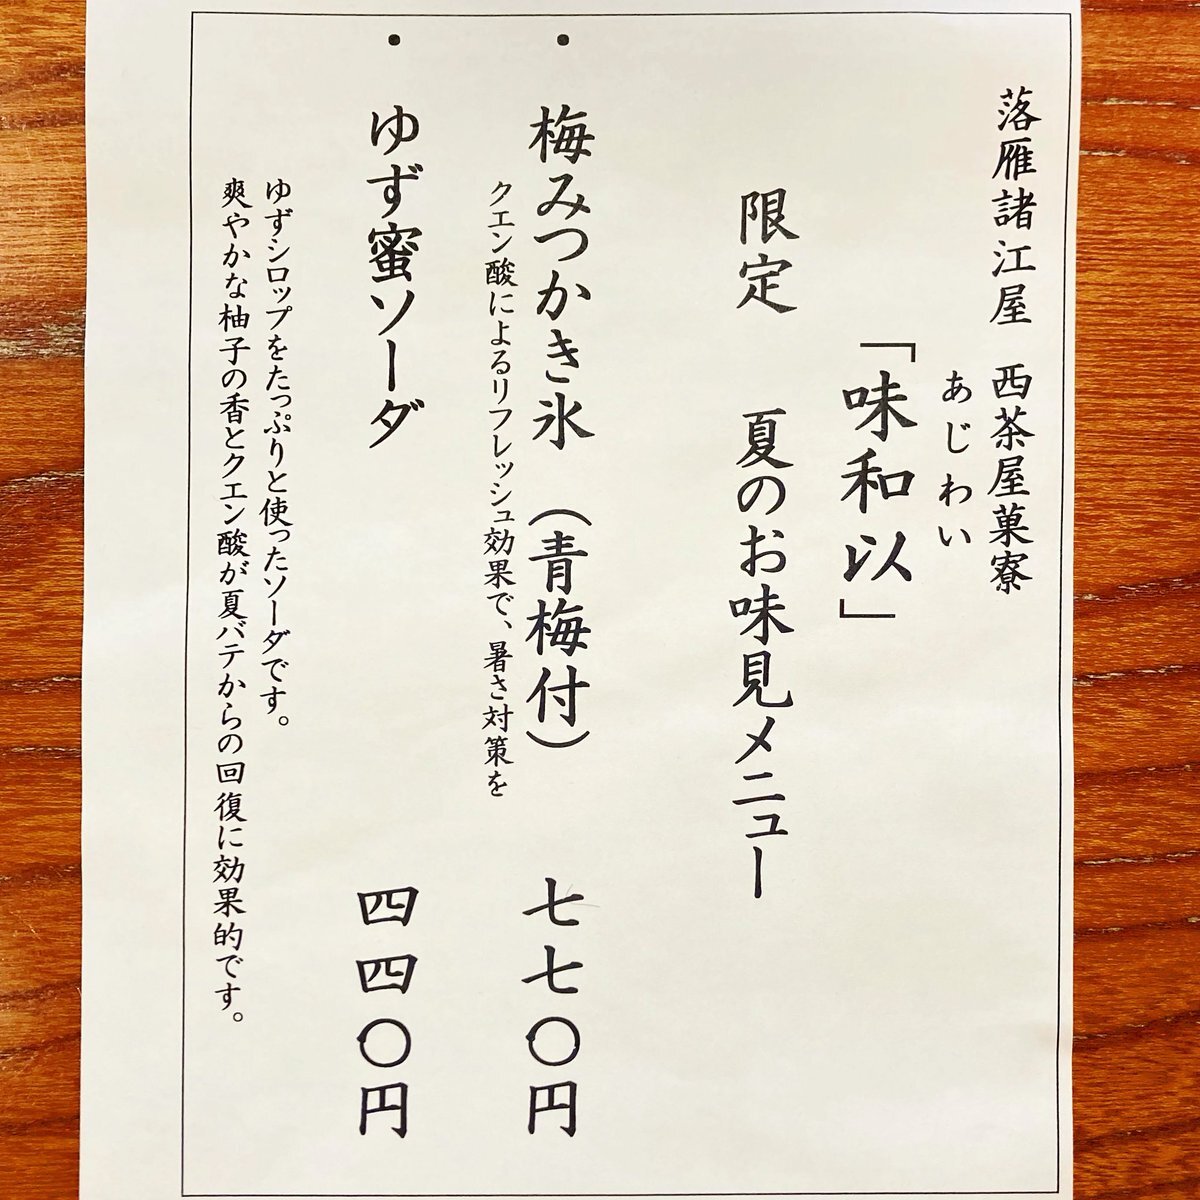 落雁諸江屋 西茶屋菓寮
あじわい
「味和以」
限定 夏のお味見メニュー
・梅みつかき氷(青梅付) 七七〇円
クエン酸によるリフレッシュ効果で、暑さ対策を
・ゆず蜜ソーダ 四四〇円
ゆずシロップをたっぷりと使ったソーダです。
爽やかな柚子の香とクエン酸が夏バテからの回復に効果的です。